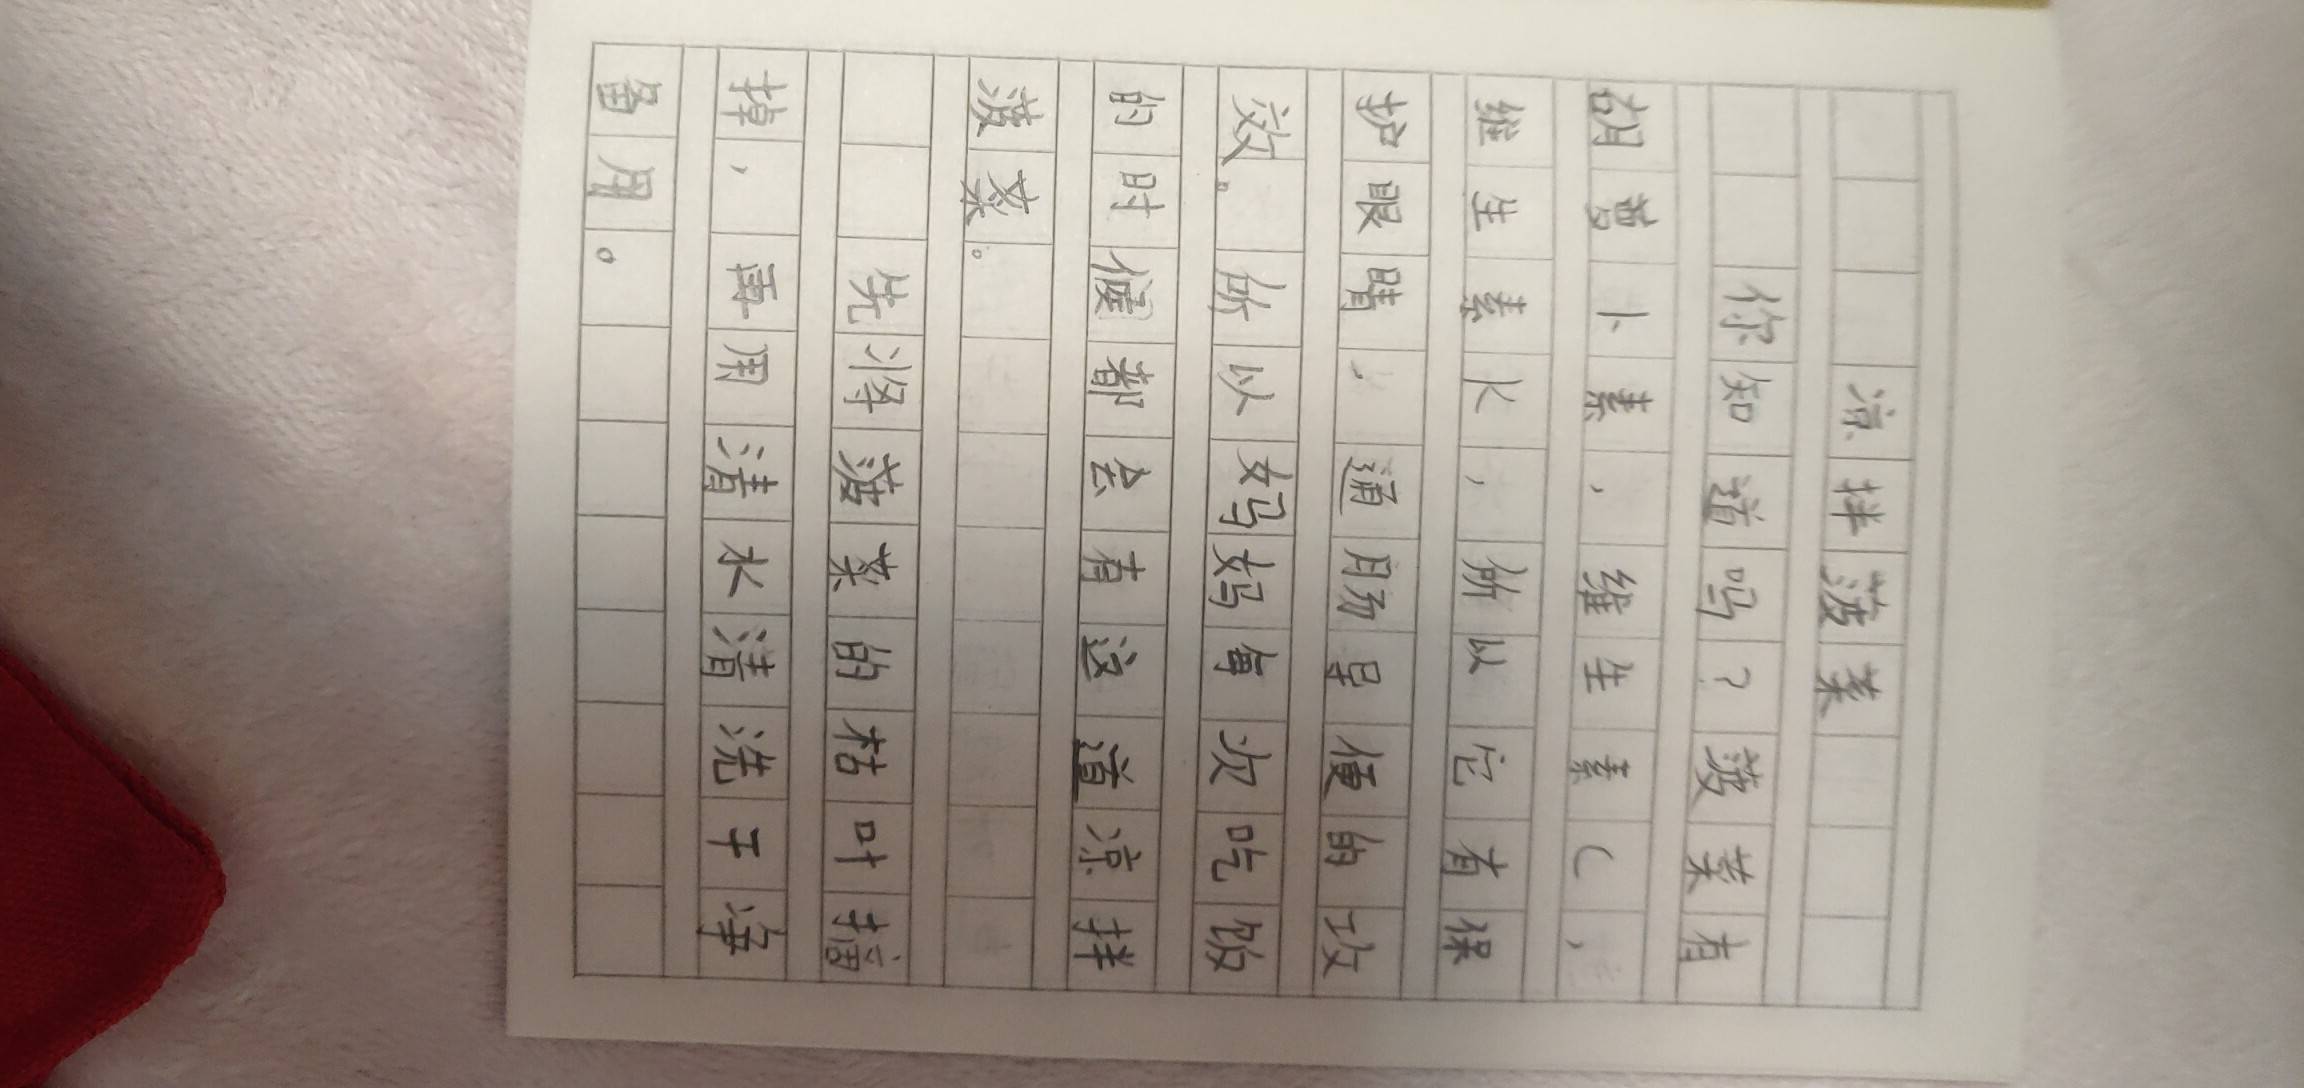 凉拌菠菜
你知道吗?菠菜有
胡萝卜素,维生素C,
维生素K,所以它有保
护眼睛,通肠导便的攻
效。所以妈妈每次吃饭
的时候都会有这道凉拌
菠菜。
先将菠菜的枯叶摘
掉,再用清水清洗干净
备用。